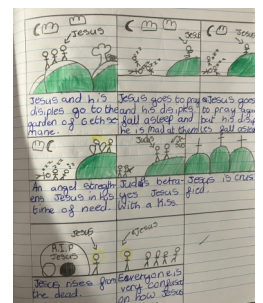 Jesus
Jesus and his
disiples go to the
garden of Gethse
mane.
Jesus
Jesus goes to pray
and his disiples
fall asleep and
he is mad at them
Jesus
Jesus goes
to pray again
but his disip
les fall asleep
An angel strength
ens Jesus in his
time of need.
Judas
Judas betra-
yes Jesus
with a kiss.
Jesus is cruci
fied.
R.I.P
Jesus
Jesus
Jesus rises from
the dead.
Jesus
Everyone is
very confused
on how Jesus